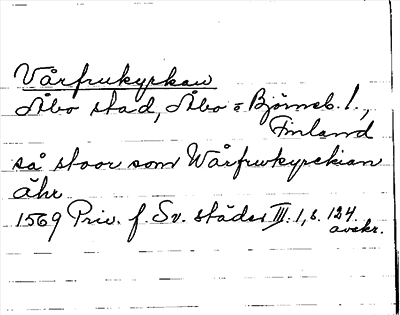 Vårfrukyrkan
Åbo stad, Åbo o Björneb. l.,
Finland
så stoor som Wårfrwkyrckian
ähr
1569 Priv. f. Sv. städer III:1, s. 124.
avskr.